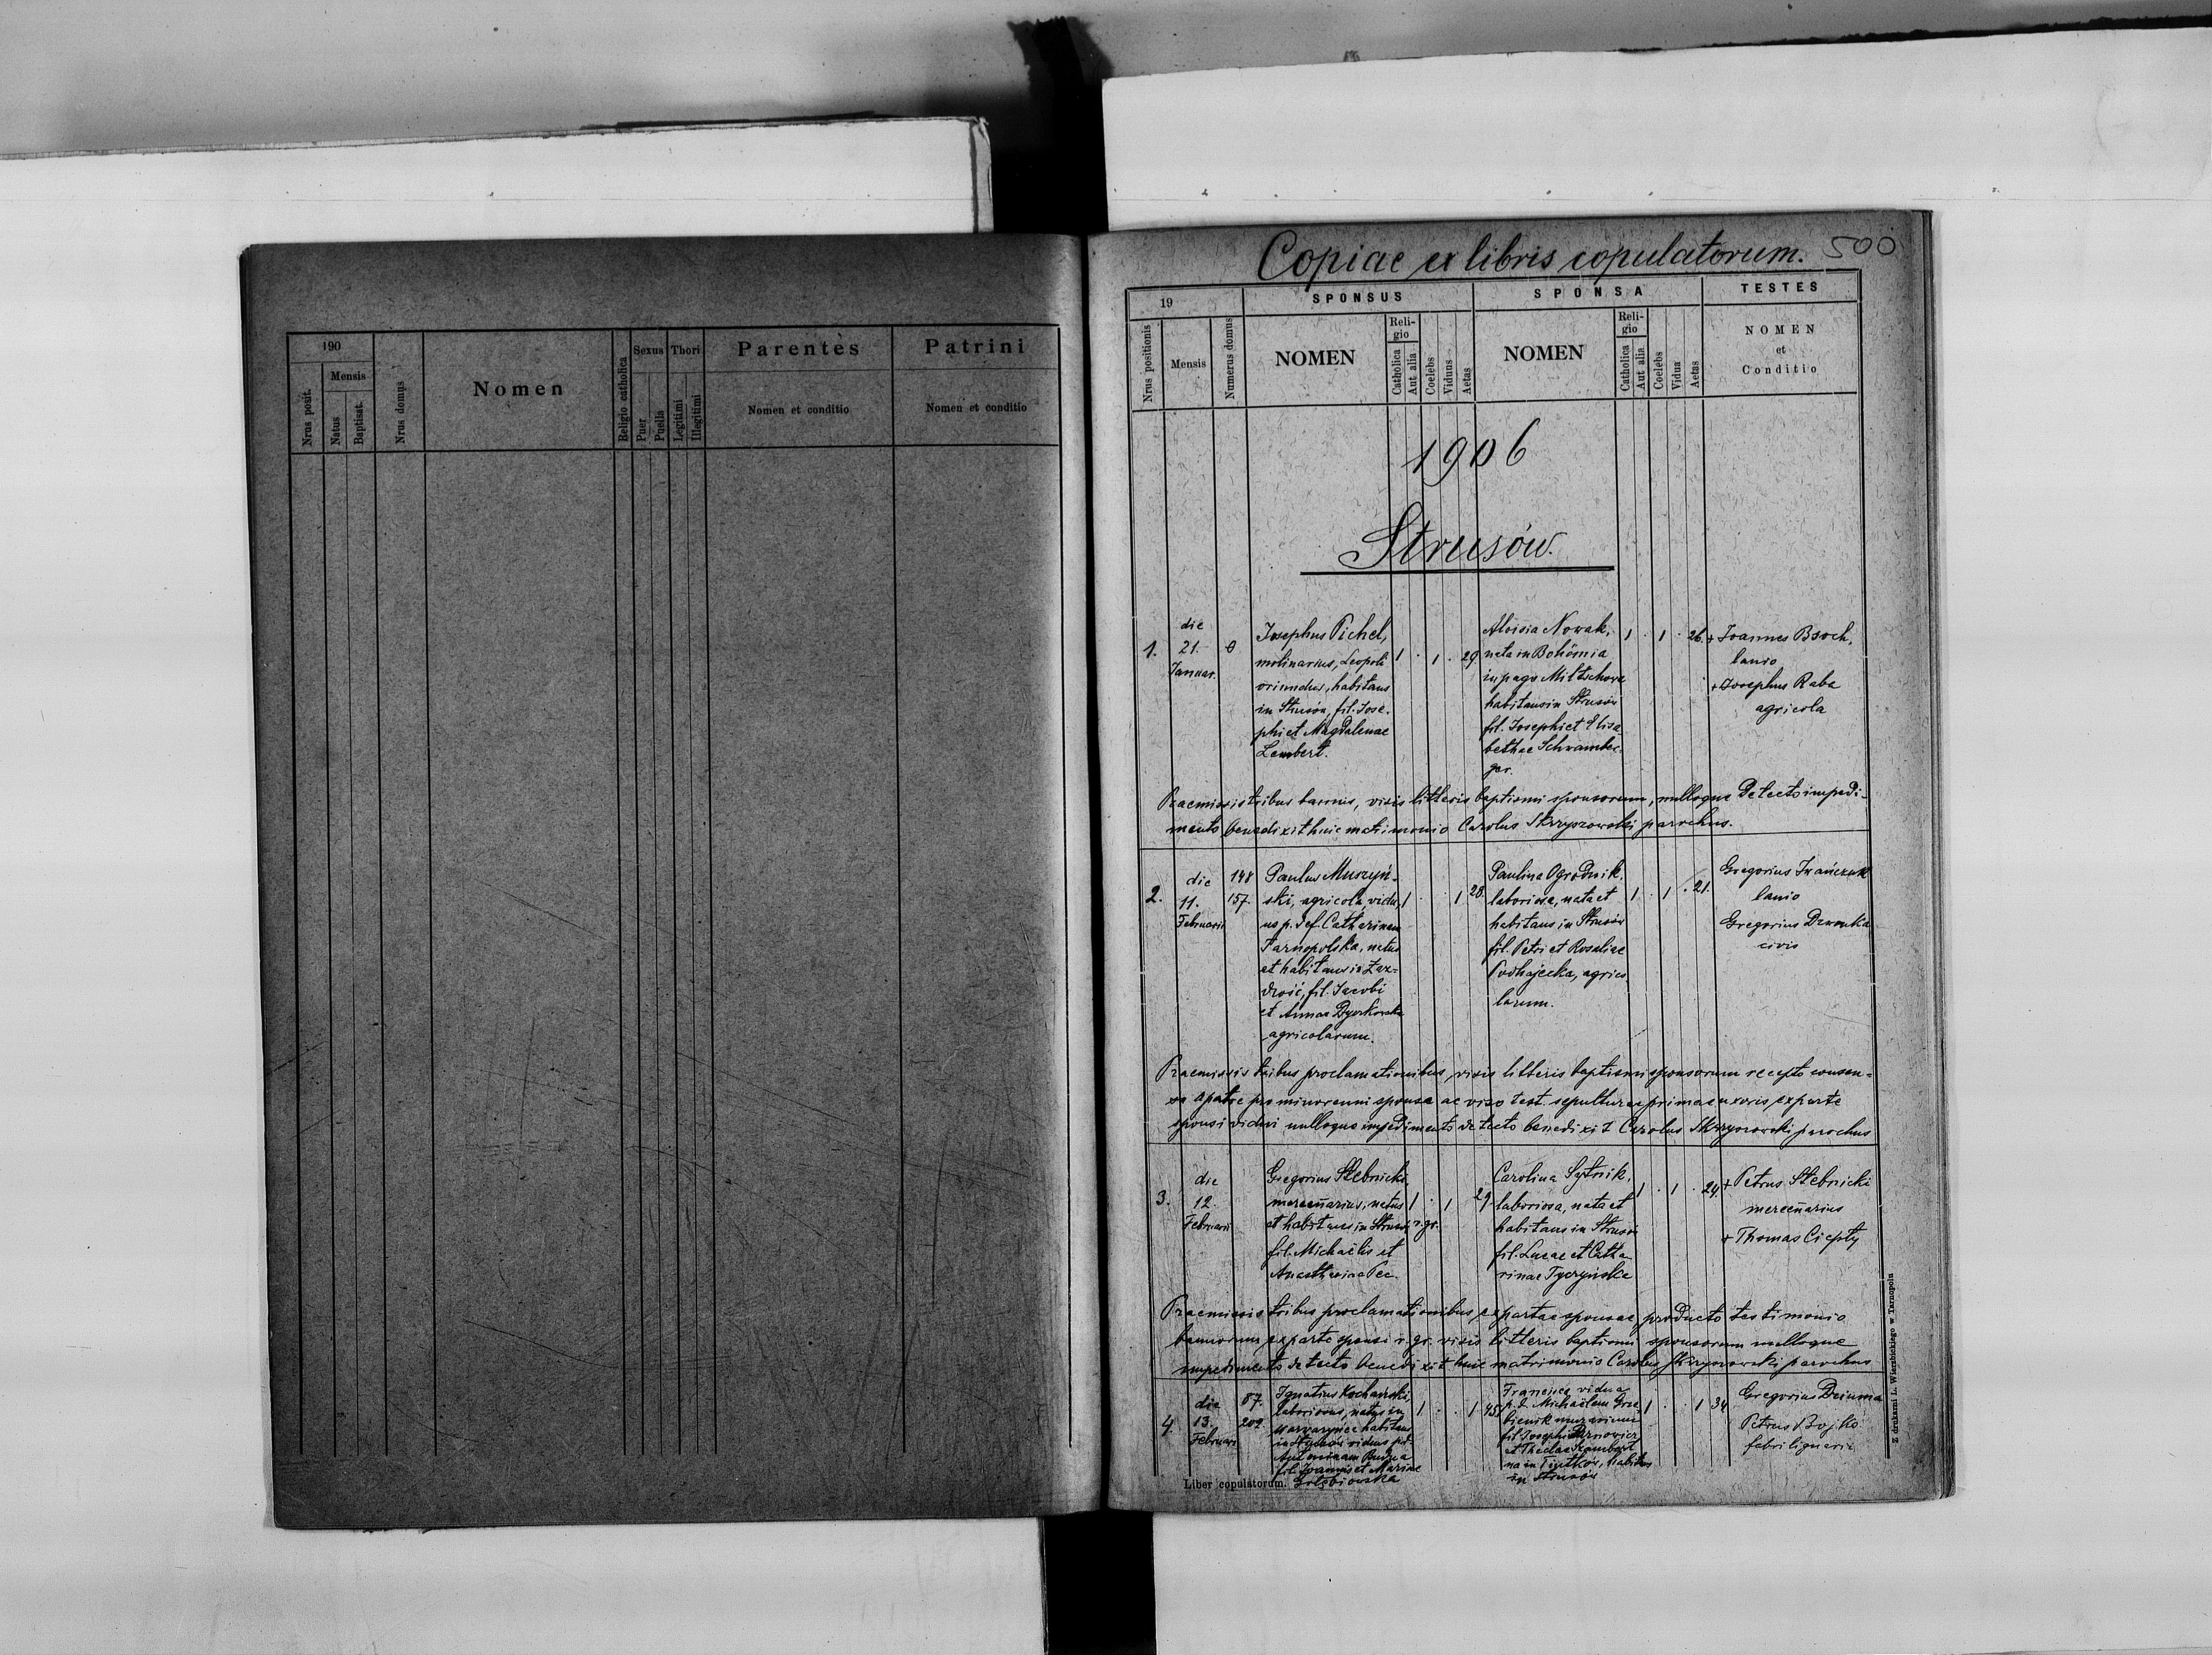 190
Nrus posit.
Mensis
Natus
Baptisat.
Nrus domus
Nomen
Religio catholica
Sexus
Puer
Puella
Thori
Legitimi
Illegitimi
Parentes
Nomen et conditio
Patrini
Nomen et conditio
Copiae ex libris copulatorum. 500
19
Nrus positionis
Mensis
Numerus domus
SPONSUS
NOMEN
Reli-
gio
Catholica
Aut alia
Coelebs
Viduus
Aetas
SPONSA
NOMEN
Reli-
gio
Catholica
Aut alia
Coelebs
Vidua
Aetas
TESTES
NOMEN
et
Conditio
1906
Strusów.
1.
die
21.
Januar.
0
Josephus Pichel,
molinarius, Leopoli
oriundus, habitans
in Strusów, fil. Jose-
phi et Magdalenae
Lembert.
1 . 1 . 29.
Aloisia Nowak,
nata in Bohömia
in pago Miltschova
habitans in Strusów
fil. Josephi et Elisa
bethae Schwamber-
ger.
1 . 1 . 26.
+ Joannes Bsoch,
lanio
+ Josephus Raba
agricola
Praemissis tribus bannis, visis litteris baptismi sponsorum, nulloque detecto impedi-
mento benedixit huic matrimonio Carolus Skrzyszowski parochus.
2.
die
11.
Februarii
148
157.
Paulus Muszyń-
ski, agricola, vidu-
us p. def. Catharinam
Tarnopolska, natus
et habitans in Zaz-
drość, fil. Jacobi
et Annae Dyczkowska
agricolarum.
1 . . 1 28.
Paulina Ogrodnik,
laboriosa, nata et
habitans in Strusów
fil. Petri et Rosaliae
Podhajecka, agrico
larum.
1 . 1 . 21.
Gregorius Iwańczuk
lanio
Gregorius Dzwonka
civis
Praemissis tribus proclamationibus, visis litteris baptismi sponsorum recepto consen-
su a patre pro minorenni sponsa ac viso test. sepulturae primae uxoris ex parte
sponsi vidui nulloque impedimento detecto benedixit Carolus Skrzyszowski parochus
3.
die
12.
Februarii
Gregorius Stebnicki,
mercenarius, natus
et habitans in Strusów
fil. Michaëlis et
Anasthasiae Pec.
1 . 1 29.
r. gr.
Carolina Sytnik,
laboriosa, nata et
habitans in Strusów
fil. Lucae et Catha
rinae Tyczyńska
1 . 1 . 24.
+ Petrus Stebnicki
mercenarius
+ Thomas Ciepły
Praemissis tribus proclamationibus ex parte sponsae, producto testimonio
bannorum ex parte sponsi r. gr. visis litteris baptismi sponsorum nulloque
impedimento detecto benedixit huic matrimonio Carolus Skrzyszowski parochus
4.
die
13.
Februarii
87.
202.
Ignatius Kochański,
laboriosus, natus in
Warwaryńce habitans
in Strusów viduus p.d.
Antoninam Rudna
fil. Joannis et Mariae
Gołębiowska
1 . . 1 45.
Francisca vidua
p. d. Michaëlem Grze
bieniak murarium
fil. Josephi
et Theclae
na in Tiutków, habitans
in Strusów
1 . . 1 34
Gregorius Dziuma
Petrus Bojko
fabri lignarii
Liber copulatorum.
Z drukarni L. Wierzbickiego w Tarnopolu